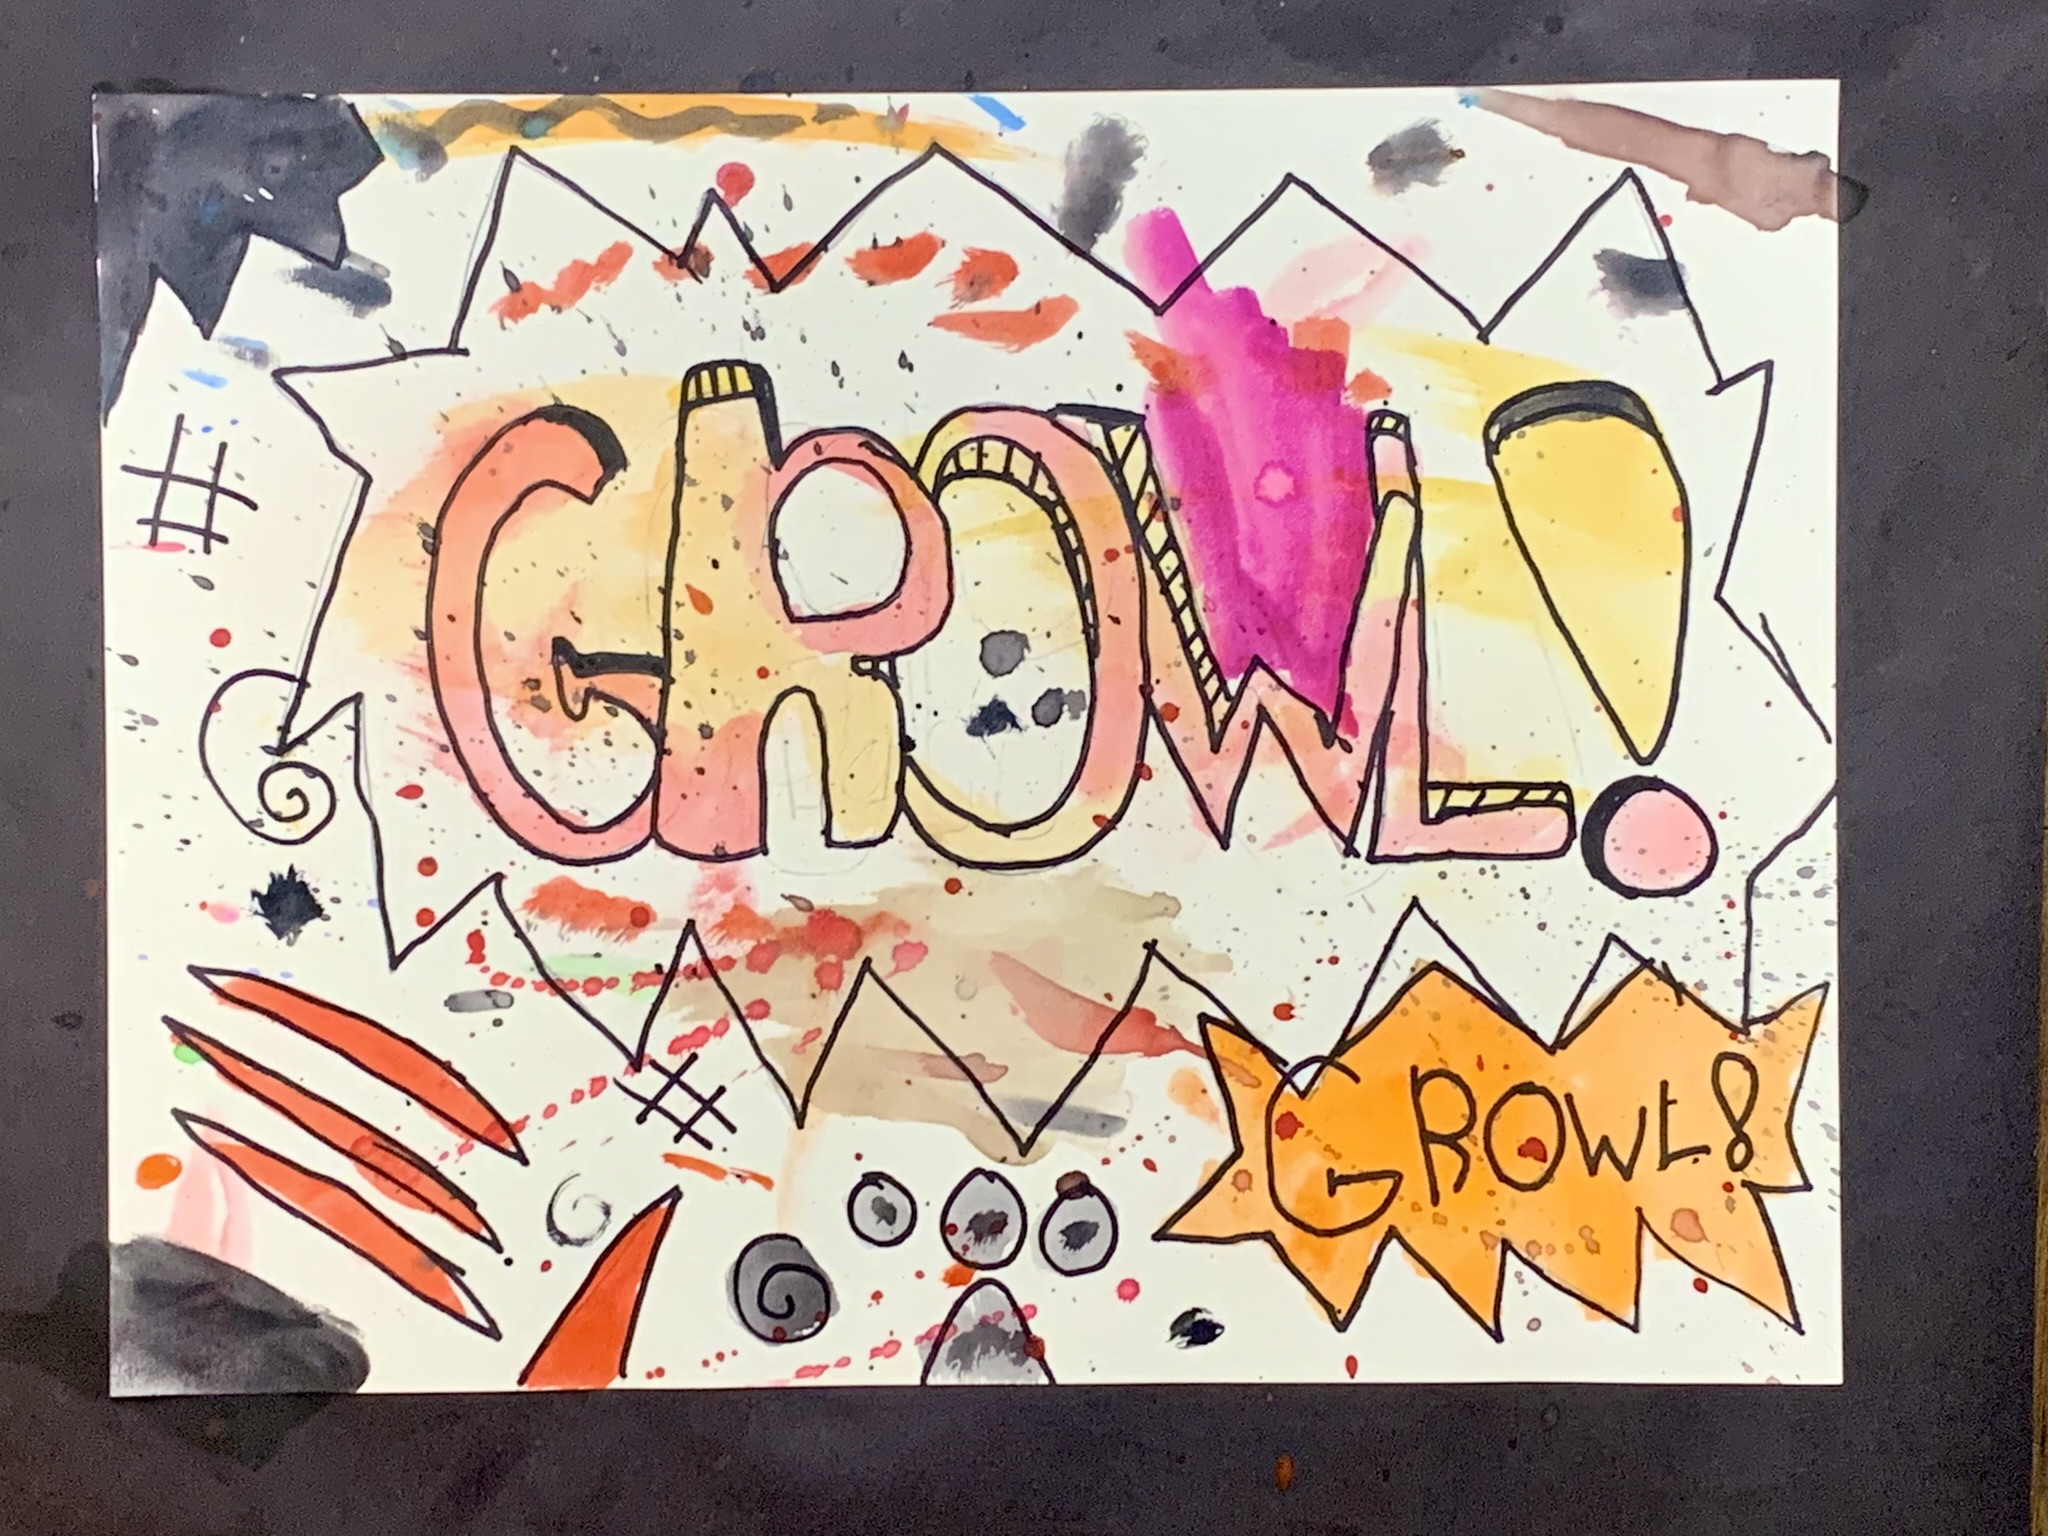 #
GROWL!
#
GROWL!